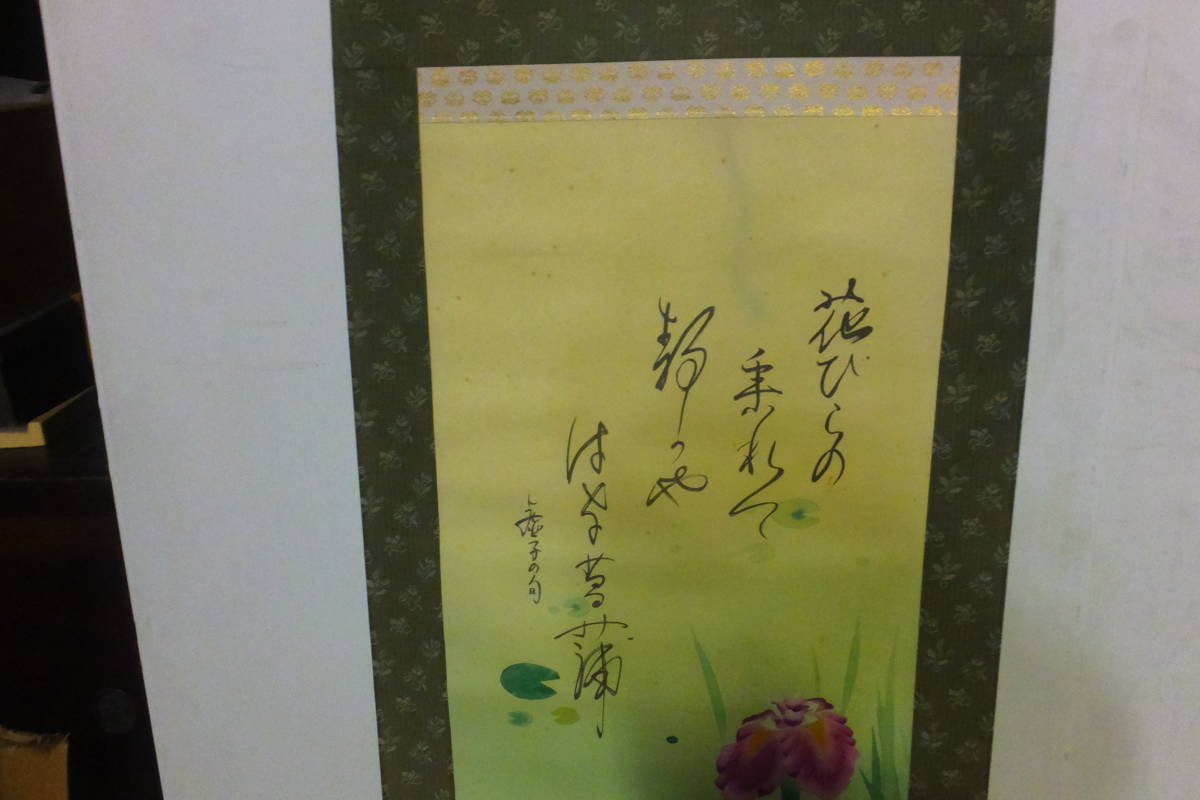 花びらの
垂れて
静かや
はな菖蒲
虚子の句